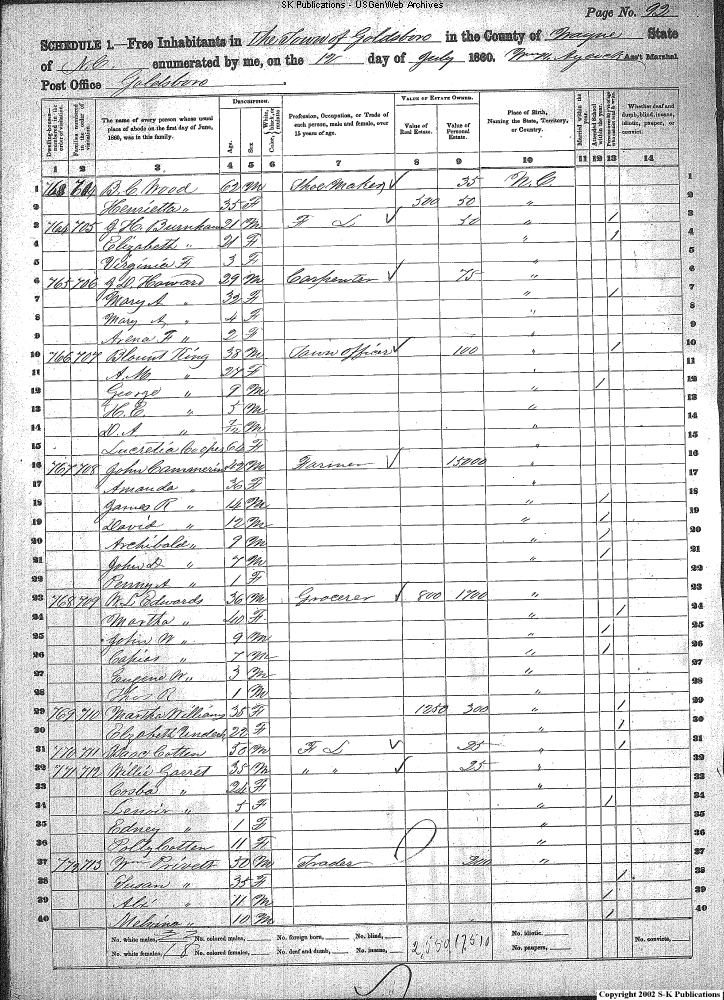 SK Publications - USGenWeb Archives
Page No. 92
SCHEDULE 1.—Free Inhabitants in The Town of Goldsboro in the County of Wayne State
of N.C. enumerated by me, on the 12 day of July 1860. Wm. Aycock Ass't Marshal
Post Office Goldsboro
Dwelling-houses numbered in the order of visitation.
Families numbered in the order of visitation.
The name of every person whose usual place of abode on the first day of June, 1860, was in this family.
DESCRIPTION.
Age.
Sex
Color, White, black, or mulatto
Profession, Occupation, or Trade of each person, male and female, over 15 years of age.
VALUE OF ESTATE OWNED.
Value of Real Estate.
Value of Personal Estate.
Place of Birth, Naming the State, Territory, or Country.
Married within the year.
Attended School within the year.
Whether deaf and dumb, blind, insane, idiotic, pauper, or convict.
1 2 3 4 5 6 7 8 9 10 11 12 13 14
1 B. C. Wood 62 M Shoe Maker 35 N.C. 1
2 Henrietta " 35 F 500 50 " 2
3 764 705 J. H. Burnham 21 M F L 50 " / 3
4 Elizabeth " 21 F " / 4
5 Virginia F 3 F " 5
6 765 706 J. D. Howard 29 M Carpenter 75 " 6
7 Mary A " 32 F " / 7
8 Mary A " 4 F " 8
9 Arena F " 2 F " 9
10 766 707 Blount King 38 M Town Officer 100 " / 10
11 A. M. " 27 F 11
12 George " 9 M " / 12
13 H. C. " 5 M " 13
14 D. A " M " 14
15 Lucretia Cooper 64 F " 15
16 767 708 John 42 M Farmer 15000 " 16
17 Amanda " 36 F 17
18 James R " 14 M " / 18
19 David " 12 M " / 19
20 Archibald " 9 M " / 20
21 John D " 7 M " / 21
22 Penny A " 1 F 22
23 768 709 W. L. Edwards 36 M Grocerer 800 1700 " 23
24 Martha " 40 F " / 24
25 John W " 9 M " / 25
26 " 7 M " / 26
27 Eugene W " 3 M " 27
28 Thos R 1 M " 28
29 769 710 Martha Williams 35 F 1250 300 " / 29
30 Elizabeth 22 F " / 30
31 770 711 Isaac Cotten 50 M F L 25 " / 31
32 771 712 Willie Garret 35 M " " 25 " 32
33 " 24 F 33
34 Lenoir " 5 F " / 34
35 Edney " 1 F " 35
36 Polly Cotten 11 F " 36
37 772 713 Wm Privett 50 M Trader 200 " 37
38 Susan " 35 F / 38
39 " 11 M / 39
40 Melvina " 10 M / 40
No. white males, No. colored males, No. foreign born, No. blind, No. idiotic, No. convicts,
No. white females, 18 No. colored females, No. deaf and dumb, No. insane, 2,550 17,510 No. paupers,
Copyright 2002 S-K Publications